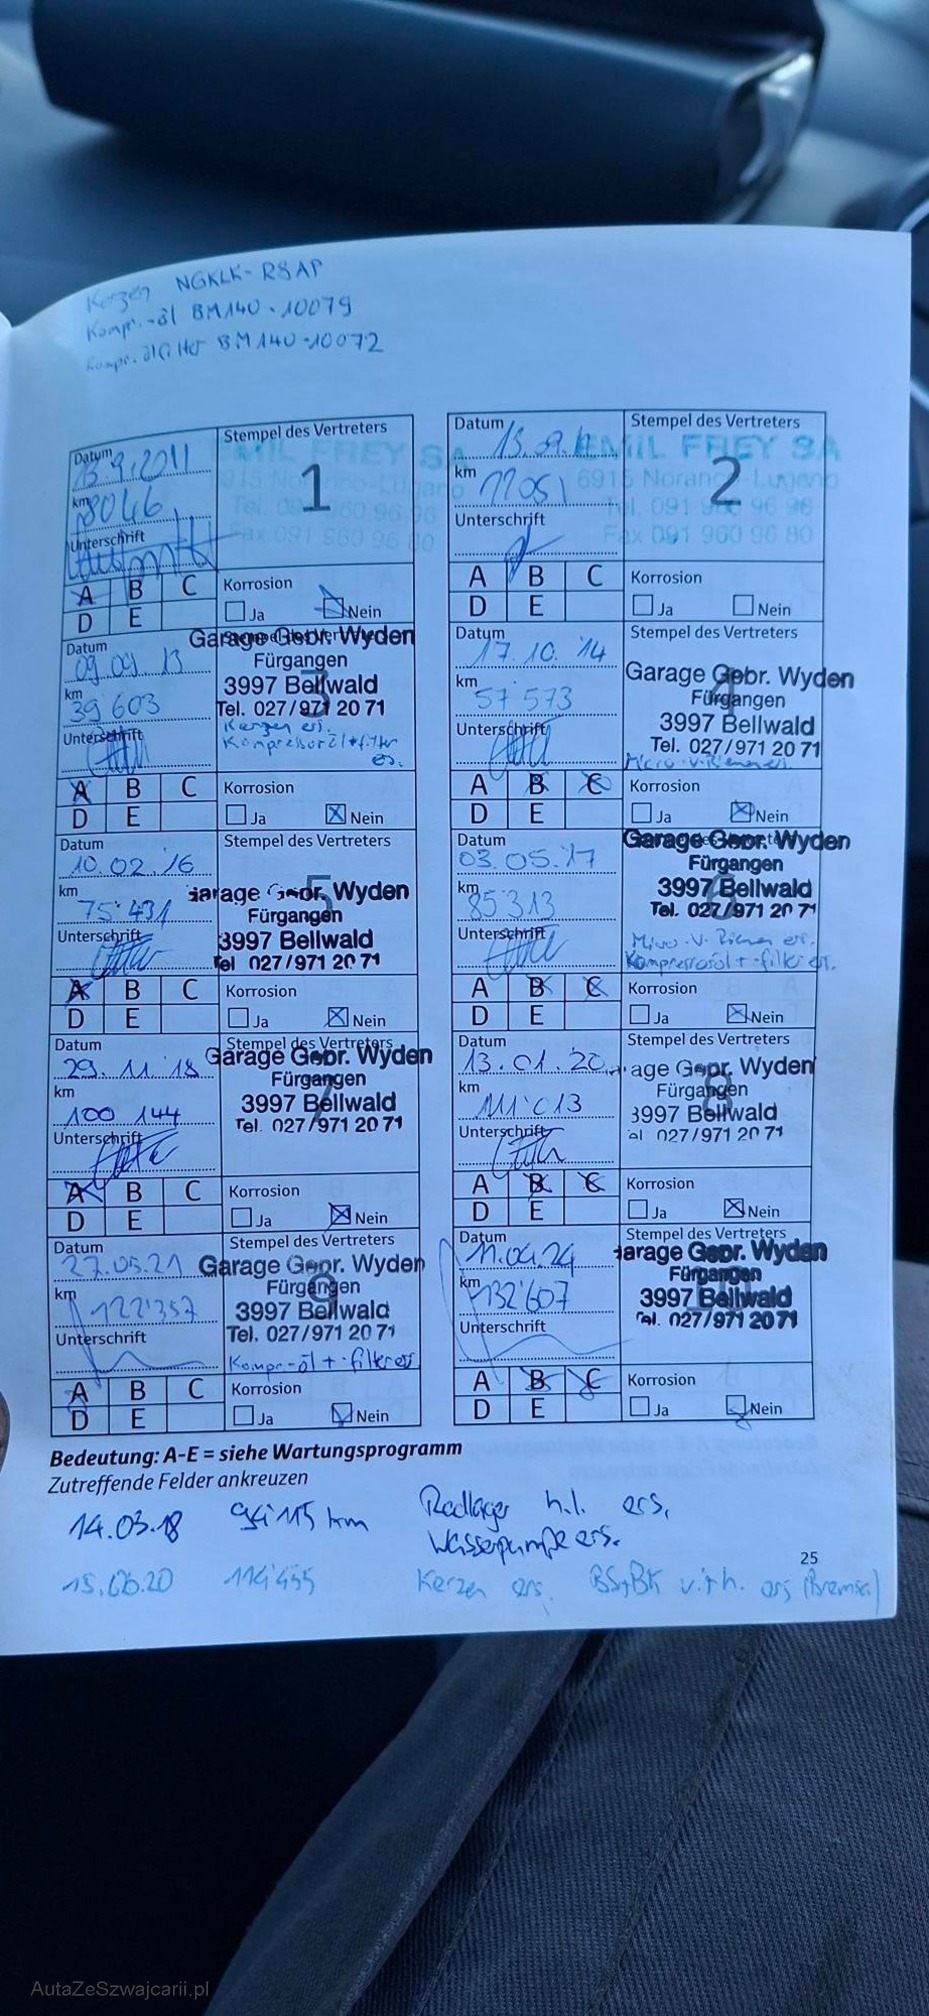 Kerzen NGKLK-RSAP
Kompr.-öl BM140-10079
Kompr.ölfilter BM140-10072
Datum
Stempel des Vertreters
EMIL FREY SA
13.9.2011
1
km
8046
Unterschrift
Fax 091 960 96 80
A B C
Korrosion
D E
Ja Nein
Datum
Stempel des Vertreters
EMIL FREY SA
km
6915 Noranco-Lugano
2
Tel. 091 960 96 96
Unterschrift
Fax 091 960 96 80
A B C
Korrosion
D E
Ja Nein
Datum
Garage Gebr. Wyden
09.09.13
Fürgangen
km
3997 Bellwald
39'603
Tel. 027/971 20 71
Unterschrift
Kerzen ers.
Kompressoröl+filter
ers.
A B C
Korrosion
D E
Ja Nein
Datum
Stempel des Vertreters
17.10.'14
Garage Gebr. Wyden
km
Fürgangen
57'573
3997 Bellwald
Unterschrift
Tel. 027/971 20 71
Micro-V-Riemen ers.
A B C
Korrosion
D E
Ja Nein
Datum
Stempel des Vertreters
10.02.'16
km
arage Gebr. Wyden
75'431
5
Fürgangen
Unterschrift
3997 Bellwald
Tel 027/971 20 71
A B C
Korrosion
D E
Ja Nein
Datum
Garage Gebr. Wyden
03.05.'17
Fürgangen
km
3997 Bellwald
85'313
6
Tel. 027/971 20 71
Unterschrift
Micro-V-Riemen ers.
Kompressoröl+-filter ers.
A B C
Korrosion
D E
Ja Nein
Datum
Stempel des Vertreters
29.11.18
Garage Gebr. Wyden
km
Fürgangen
100'144
3997 Bellwald
7
Unterschrift
Tel. 027/971 20 71
A B C
Korrosion
D E
Ja Nein
Datum
Stempel des Vertreters
13.01.20
age Gebr. Wyden
km
Fürgangen
111'013
8
3997 Bellwald
Unterschrift
el 027/971 20 71
A B C
Korrosion
D E
Ja Nein
Datum
Stempel des Vertreters
27.05.21
Garage Gebr. Wyden
km
Fürgangen
122'357
9
3997 Bellwald
Unterschrift
Tel. 027/971 20 71
Kompr-öl+-filter ers
A B C
Korrosion
D E
Ja Nein
Datum
Stempel des Vertreters
11.04.24
arage Gebr. Wyden
km
Fürgangen
132'607
3997 Bellwald
Unterschrift
Tel. 027/971 20 71
A B C
Korrosion
D E
Ja Nein
Bedeutung: A-E = siehe Wartungsprogramm
Zutreffende Felder ankreuzen
14.03.18 km Radlager h.l. ers,
Wasserpumpe ers.
25
15.06.20 114'455 Kerzen ers. BS+BK v.+h. ers (Bremse)
AutaZeSzwajcarii.pl